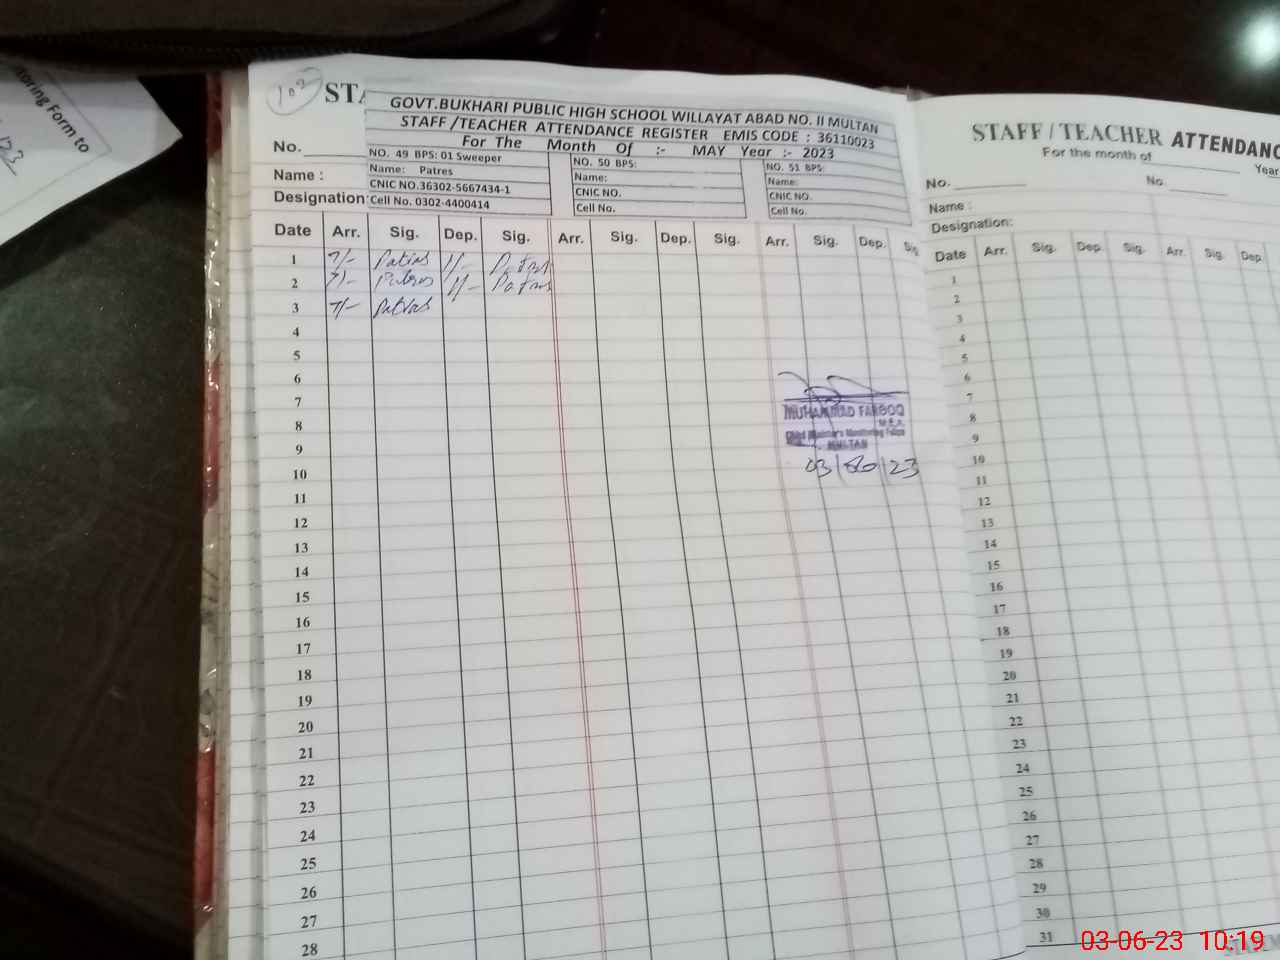 102
STA
GOVT.BUKHARI PUBLIC HIGH SCHOOL WILLAYAT ABAD NO. II MULTAN
STAFF /TEACHER ATTENDANCE REGISTER EMIS CODE : 36110023
For The Month Of :- MAY Year :- 2023
No.
Name :
Designation:
NO. 49 BPS: 01 Sweeper
Name: Patres
CNIC NO.36302-5667434-1
Cell No. 0302-4400414
NO. 50 BPS:
Name:
CNIC NO.
Cell No.
NO. 51 BPS:
Name:
CNIC NO.
Cell No.
Date Arr. Sig. Dep. Sig. Arr. Sig. Dep. Sig. Arr. Sig. Dep. Sig
1 7/- Patras 1/- Patras
2 7/- Patras 1/- Patras
3 7/- Patras
4
5
6
7
8
9
10
11
12
13
14
15
16
17
18
19
20
21
22
23
24
25
26
27
28
MUHAMMAD FAROOQ
M.E.A.
Chief Minister's Monitoring Force
MULTAN
03/06/23
STAFF / TEACHER ATTENDANC
For the month of Year
No. No.
Name :
Designation:
Date Arr. Sig. Dep. Sig. Arr. Sig. Dep.
1
2
3
4
5
6
7
8
9
10
11
12
13
14
15
16
17
18
19
20
21
22
23
24
25
26
27
28
29
30
31
oring Form to
03-06-23 10:19